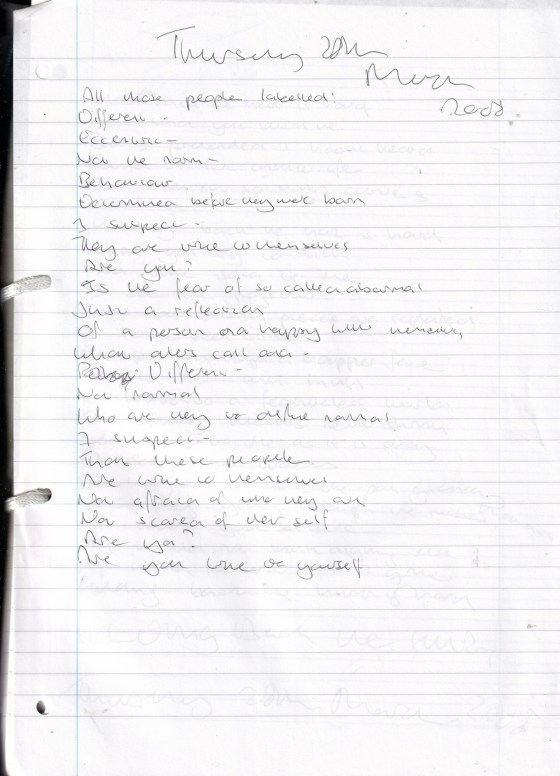 Thursday 20th
March
2008
All those people labelled:
Different -
Eccentric -
Not the norm -
Behaviour
Determined before they were born
I suspect -
They are true to themselves
Are you?
Is the fear of so called abnormal
Just a reflection
Of a person happy with themselves,
Which others call
Different -
Not normal
Who are they to define normal
I suspect -
That these people
Are true to themselves
Not afraid of who they are
Not scared of their self
Are you?
Are you true to yourself